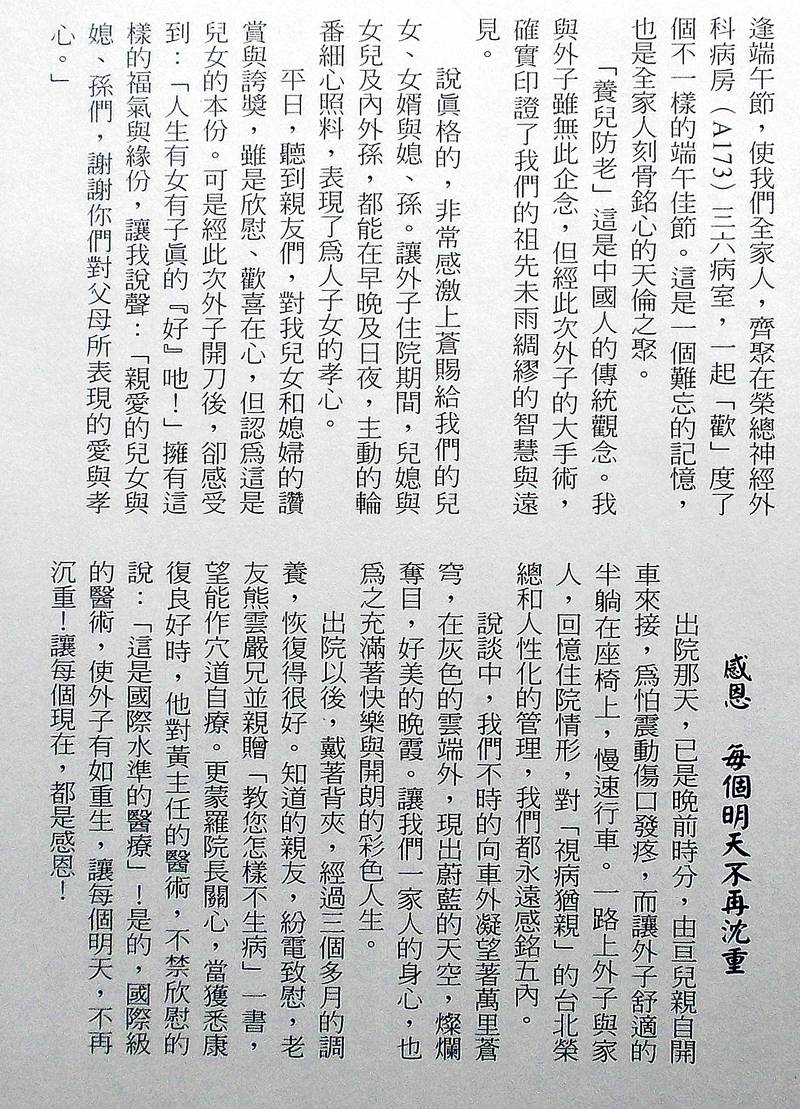 逢端午節，使我們全家人，齊聚在榮總神經外
科病房（A173）三六病室，一起「歡」度了
個不一樣的端午佳節。這是一個難忘的記憶，
也是全家人刻骨銘心的天倫之聚。
「養兒防老」這是中國人的傳統觀念。我
與外子雖無此企念，但經此次外子的大手術，
確實印證了我們的祖先未雨綢繆的智慧與遠
見。
說眞格的，非常感激上蒼賜給我們的兒
女、女婿與媳、孫。讓外子住院期間，兒媳與
女兒及內外孫，都能在早晚及日夜，主動的輪
番細心照料，表現了爲人子女的孝心。
平日，聽到親友們，對我兒女和媳婦的讚
賞與誇獎，雖是欣慰、歡喜在心，但認爲這是
兒女的本份。可是經此次外子開刀後，卻感受
到：「人生有女有子眞的『好』吔！」擁有這
樣的福氣與緣份，讓我說聲：「親愛的兒女與
媳、孫們，謝謝你們對父母所表現的愛與孝
心。」
感恩　每個明天不再沈重
出院那天，已是晚前時分，由亘兒親自開
車來接，爲怕震動傷口發疼，而讓外子舒適的
半躺在座椅上，慢速行車。一路上外子與家
人，回憶住院情形，對「視病猶親」的台北榮
總和人性化的管理，我們都永遠感銘五內。
說談中，我們不時的向車外凝望著萬里蒼
穹，在灰色的雲端外，現出蔚藍的天空，燦爛
奪目，好美的晚霞。讓我們一家人的身心，也
爲之充滿著快樂與開朗的彩色人生。
出院以後，戴著背夾，經過三個多月的調
養，恢復得很好。知道的親友，紛電致慰，老
友熊雲嚴兄並親贈「教您怎樣不生病」一書，
望能作穴道自療。更蒙羅院長關心，當獲悉康
復良好時，他對黃主任的醫術，不禁欣慰的
說：「這是國際水準的醫療」！是的，國際級
的醫術，使外子有如重生，讓每個明天，不再
沉重！讓每個現在，都是感恩！